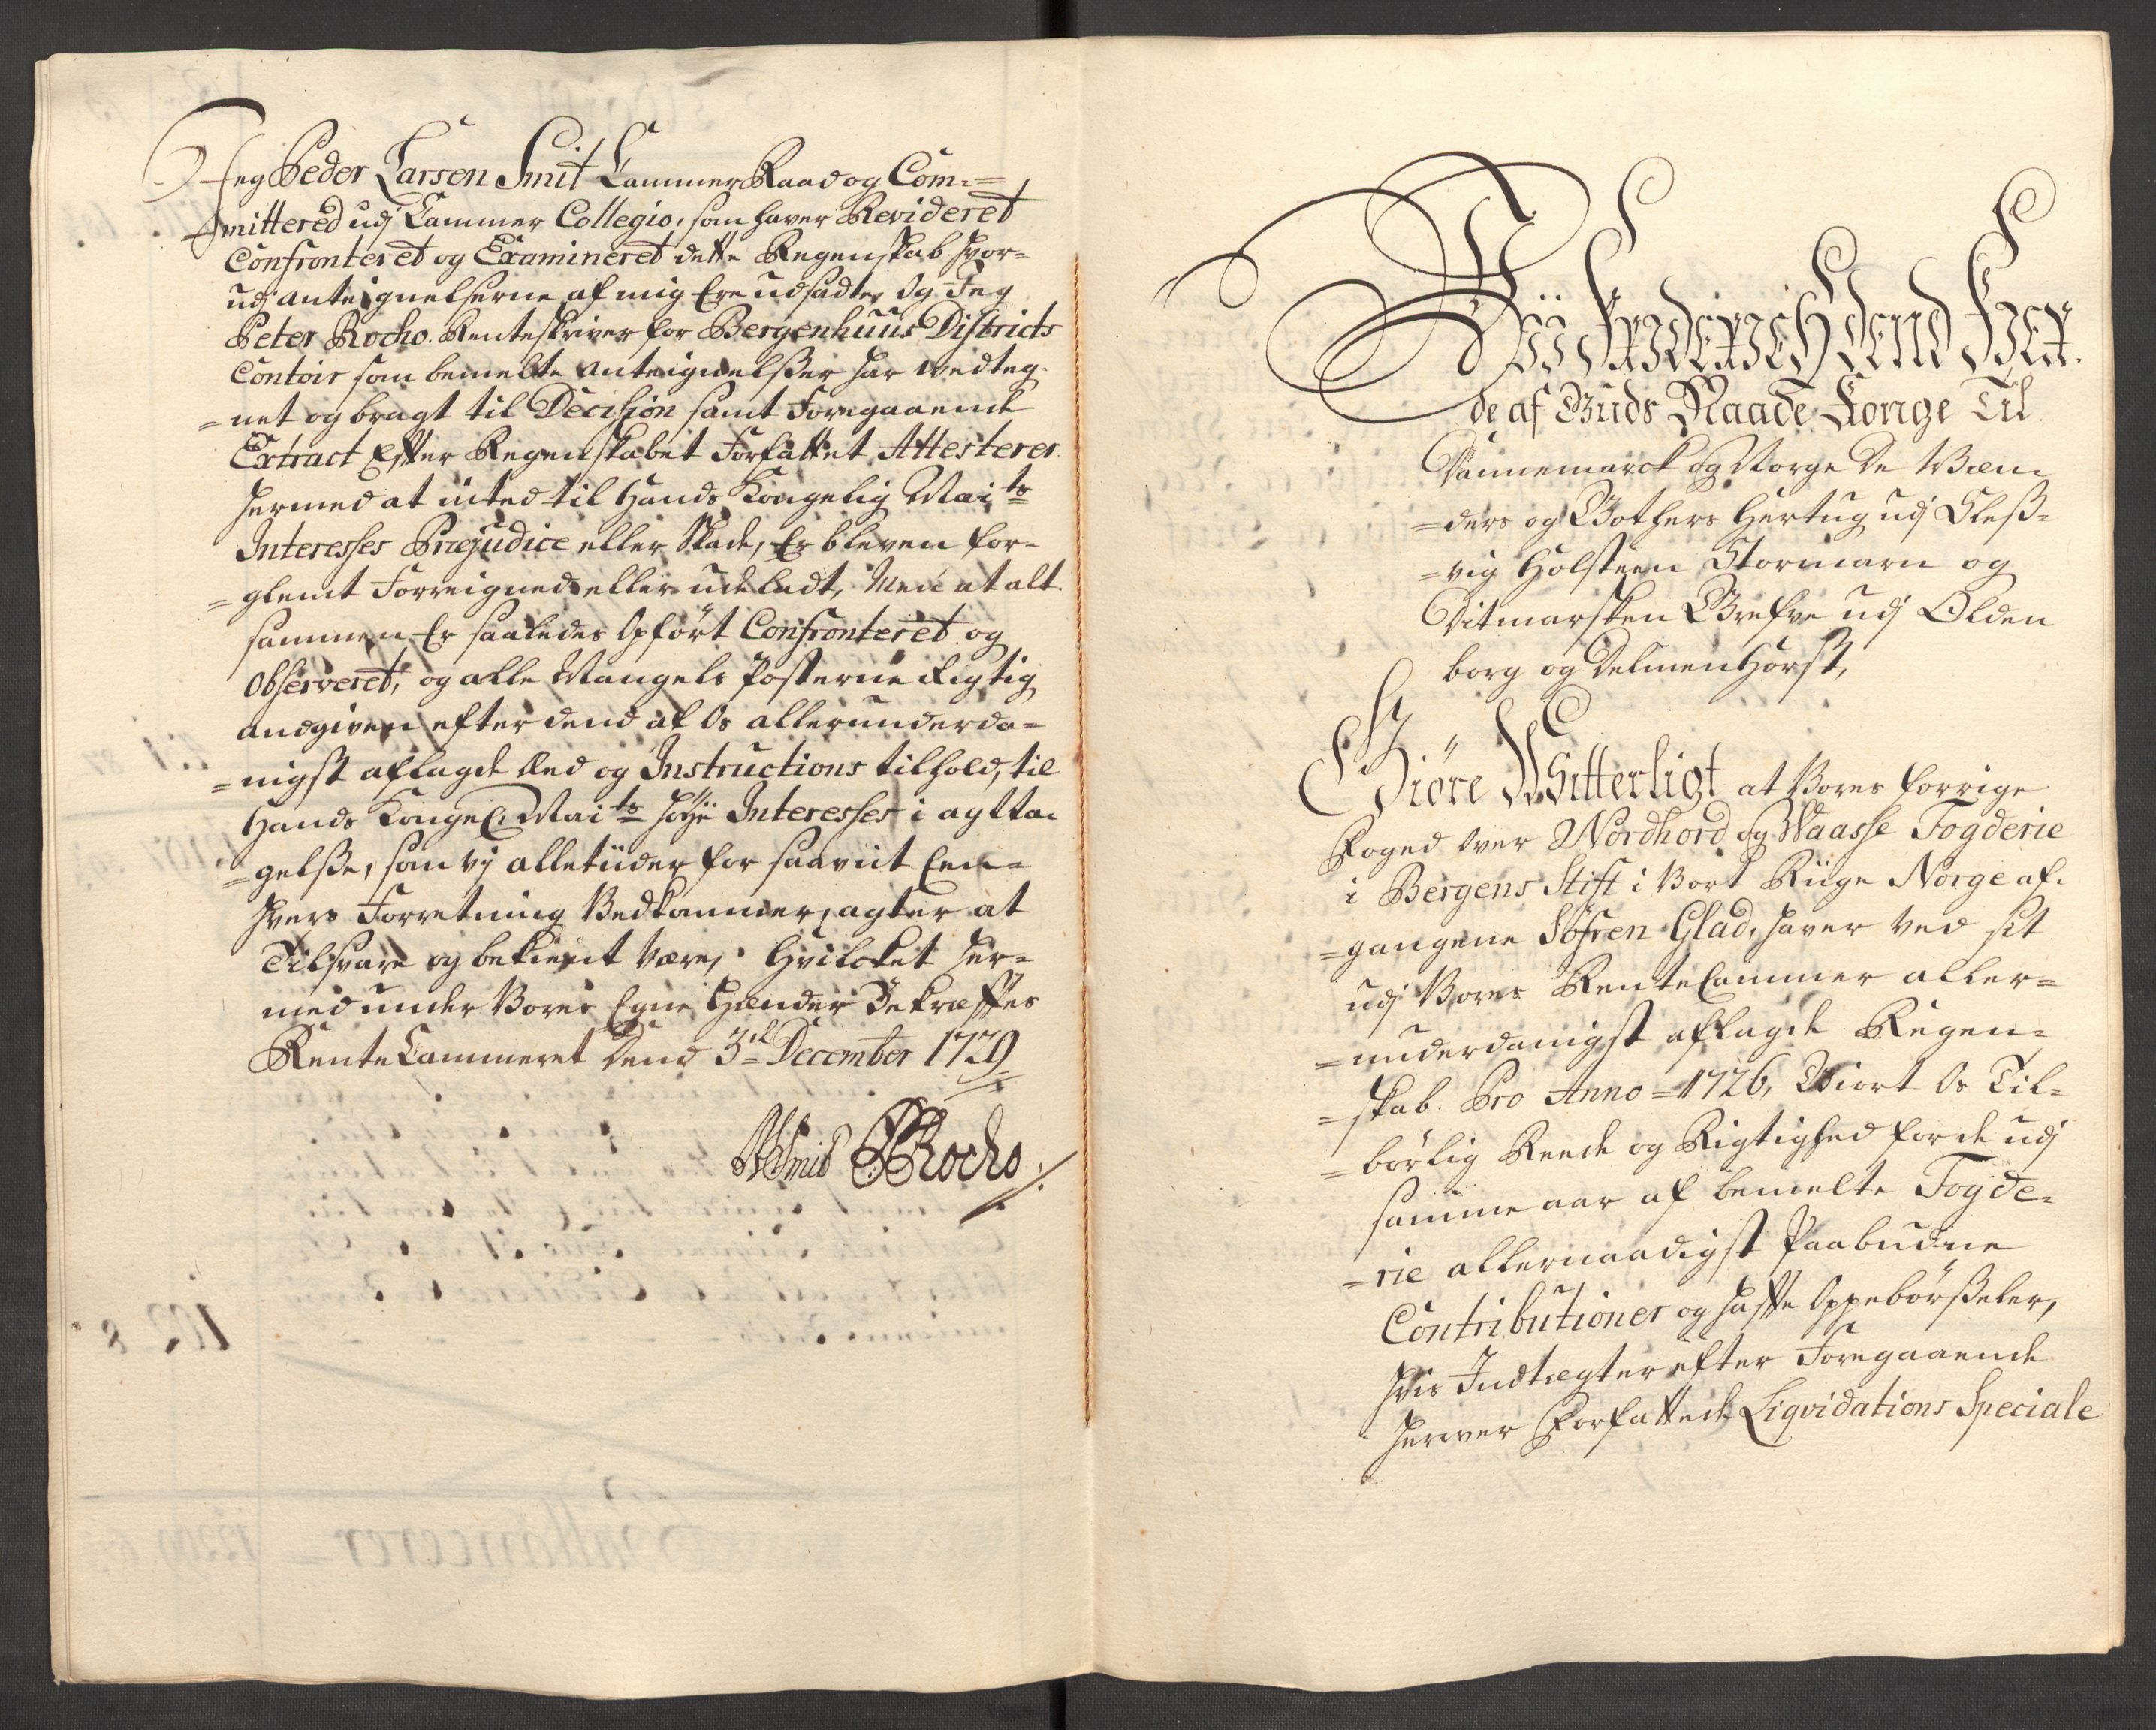 Jeg Peder Larsen Smit Cammer Raad og Com-
mittered udj Cammer Collegio, som haver Revideret
Confronteret og Examineret dette Regenskab hvor-
udj anteignelserne af mig Ere udsadte, Og Jeg
Peter Rocho. Renteskriver for Bergenhuus Districts
Contoir som bemelte Anteignelßer har vedteg-
net og bragt til Decision samt Foregaaende
Extract Efter Regenskabet Forfattet Attesterer
hermed at inted til Hands Kongelig Maits
Interesses Præjudice eller Skade, Er bleven for-
glemt Forreigned eller udeladt, Men at alt-
sammen Er saaledes Opført Confronteret og
Observeret, og alle Mangels Posterne Rigtig
andgiven efter dend af Os allerunderda-
nigst aflagde Æed og Instructions tilhold, til
Hands Kongel. Maits høye Interesses i agtta-
gelße, som vj alletiider for saaviit Een-
hvers Forretning Vedkommer, agter at
Tilsvare og bekient være, Hvilcket her-
med under Vores Egne Hænder Bekræfftes
Rente Cammeret Dend 3de December 1729
PLSmit PRocho
Wii Friderich dend Fier-
de af Guds Naade Konge Til
Dannemarck og Norge De Wen-
ders og Gothers Hertug udj Sleß-
vig Holsteen Stormarn og
Ditmarsken Grefve udj Olden
borg og Delmenhorst,
Giöre Witterligt at Vores forrige
Foged over Nordhord og Waasse Fogderie
i Bergens Stift i Vort Riige Norge af-
gangene Söfren Glad, haver ved sit
udj Vores Rente Cammer aller-
underdanigst aflagde Regen-
skab. Pro Anno 1726, Giort Os Til-
börlig Reede og Rigtighed for de udj
samme aar af bemelte Fogde-
rie allernaadigst Paabudne
Contributioner og haffte Oppebörßeler,
hvis Indtægter efter Foregaaende
herover Forfattede Liqvidations Speciale